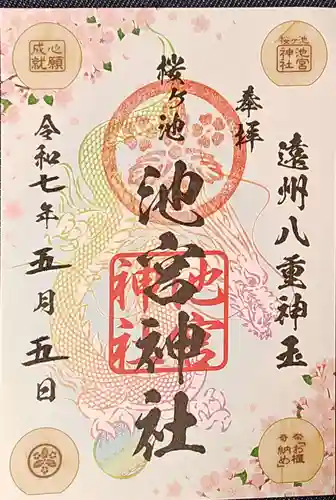 遠州八重神玉
奉拝
桜ヶ池
池宮神社
令和七年五月五日
池宮
神社
心願
成就
桜ヶ池
池宮
神社
お櫃
納め